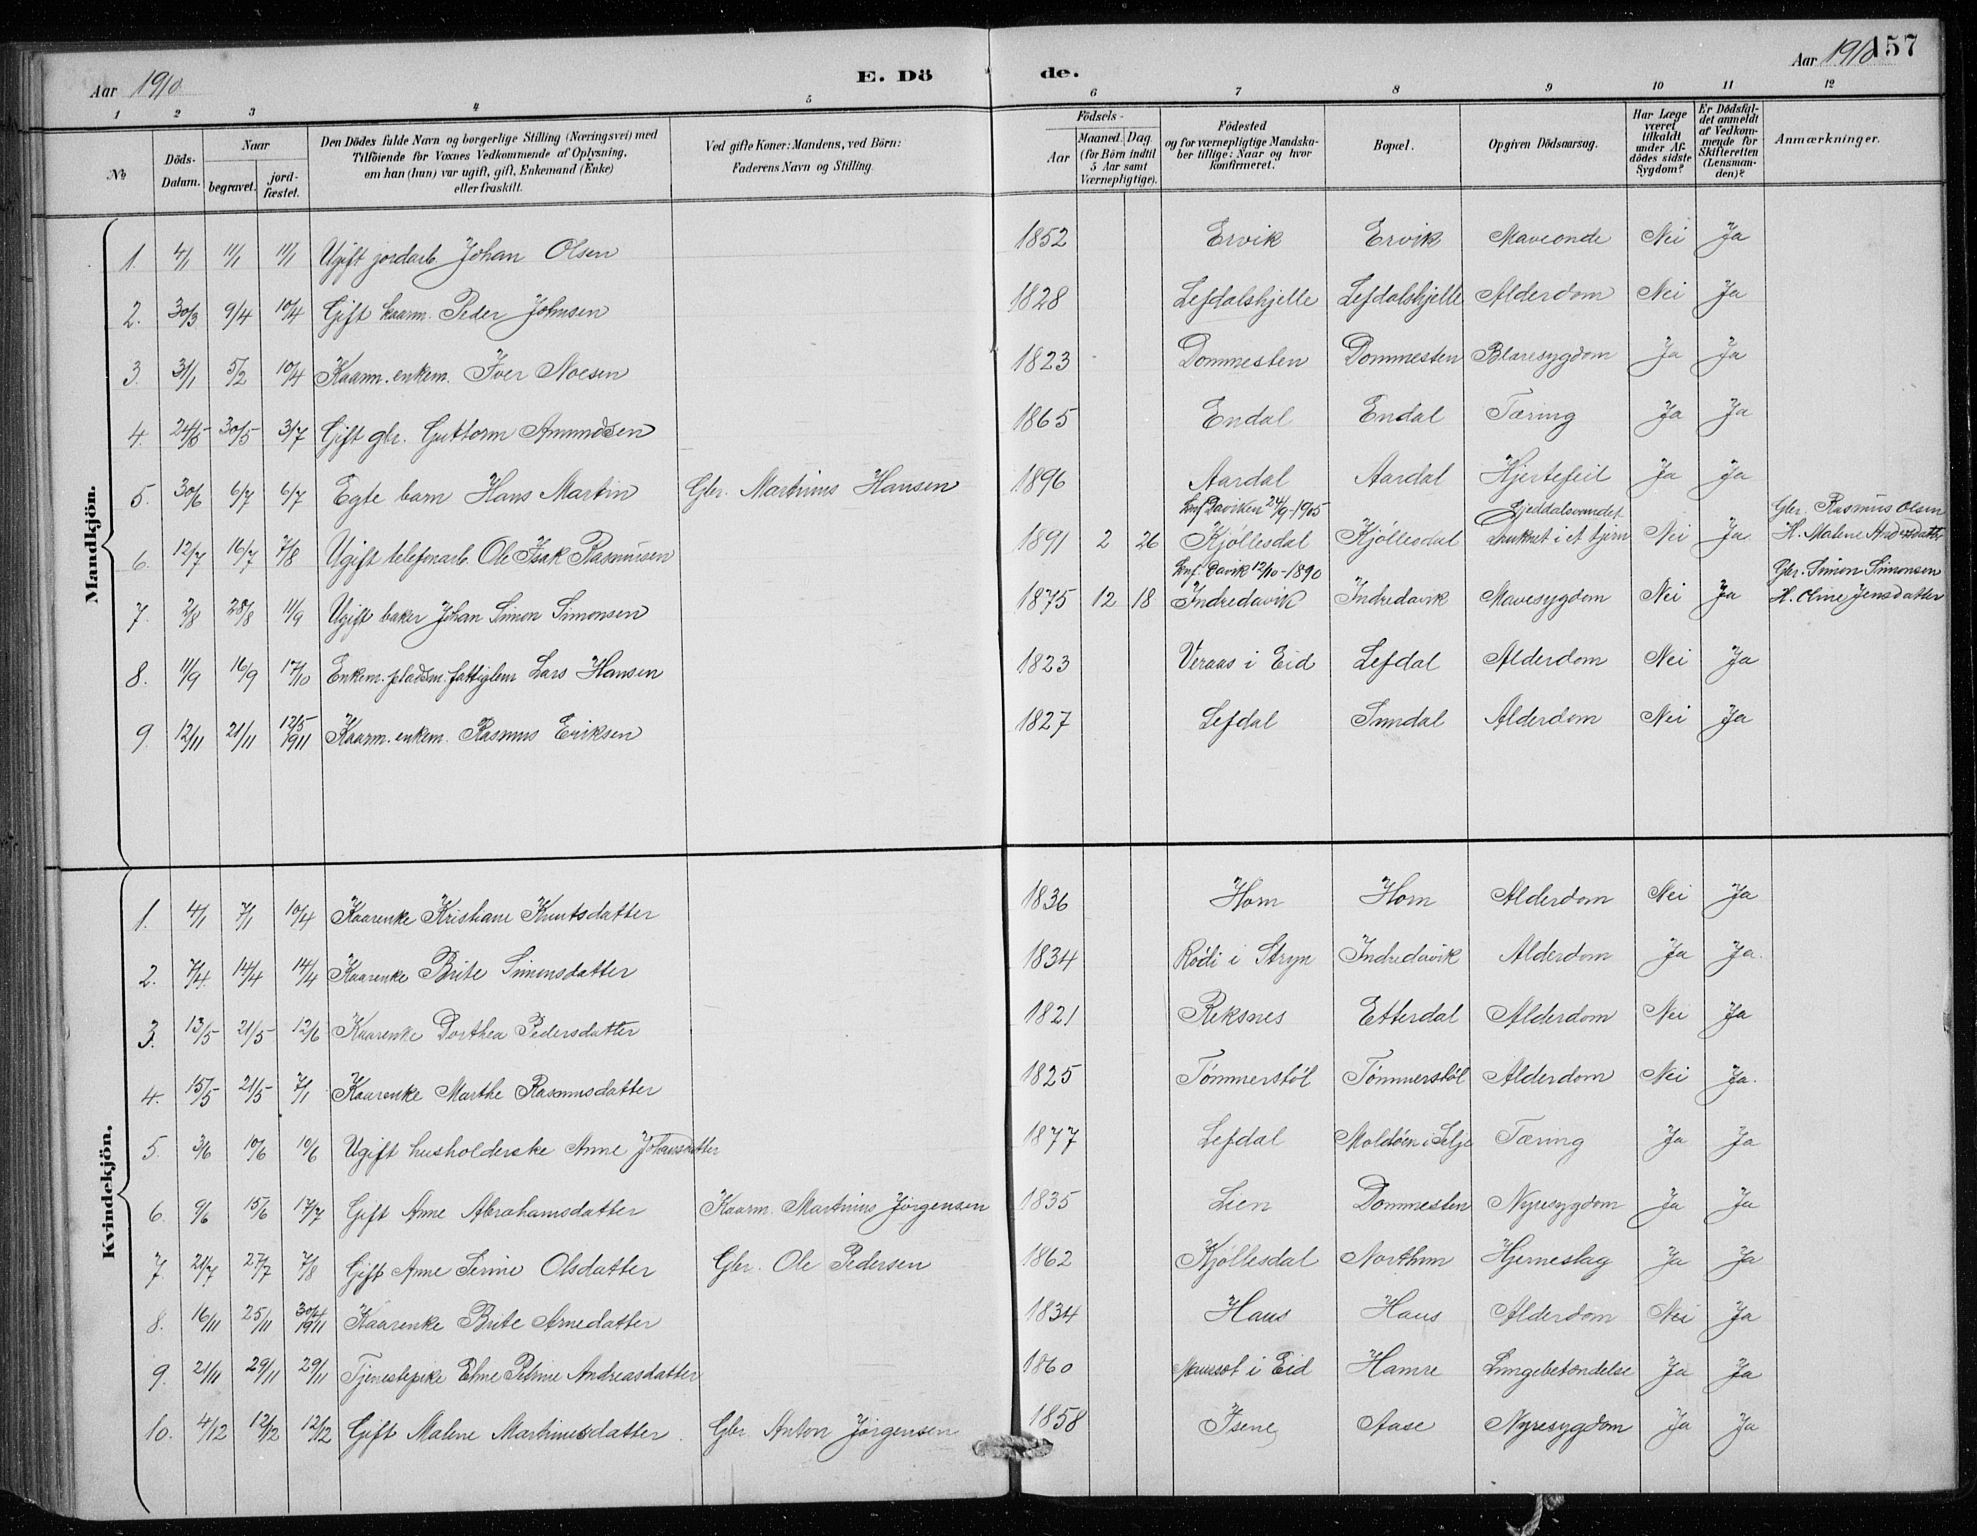 Aar 1910
E. Dö
de.
Aar 1910
157
1 2 3 4 5 6 7 8 9 10 11 12
No
Döds-Datum.
Naar
begravet.
jord-fæstet.
Den Dödes fulde Navn og borgerlige Stilling (Næringsvei) med
Tilföiende for Voxnes Vedkommende af Oplysning,
om han (hun) var ugift, gift, Enkemand (Enke)
eller fraskilt.
Ved gifte Koner: Mandens, ved Börn:
Faderens Navn og Stilling.
Födsels-
Aar
Maaned. Dag
(for Börn indtil
5 Aar samt
Værnepligtige).
Födested
og for værnepligtige Mandskaber tillige: Naar og hvor konfirmeret.
Bopæl.
Opgiven Dödsaarsag.
Har Læge været tilkaldt under Afdödes sidste Sygdom?
Er Dödsfaldet anmeldt af Vedkommende for Skifteretten (Lensmanden)?
Anmærkninger.
Mandkjön.
1. 4/1 11/1 11/1 Ugift jordarb. Johan Olsen 1852 Ervik Ervik Maveonde Nei Ja
2. 30/3 9/4 10/4 Gift kaarm. Peder Johnsen 1828 Lefdalshjelle Lefdalshjelle Alderdom Nei Ja
3. 31/1 5/2 10/4 Kaarm. enkem. Iver Moesen 1823 Dommesten Dommesten Blæresygdom Ja Ja
4. 24/5 30/5 3/7 Gift gbr. Guttorm Amundsen 1865 Endal Endal Tæring Ja Ja
5. 30/6 6/7 6/7 Egte barn Hans Martin Gbr. Martinus Hansen 1896 Aardal Aardal Hjertefeil Ja Ja
konf Daviken 24/9-1905 Gjeddalsvandet Gbr. Rasmus Olsen
6. 12/7 16/7 7/8 Ugift telefonarb. Ole Isak Rasmussen 1891 2 26 Kjøllesdal Kjøllesdal druknet i et tjern Nei Ja H. Malene
konf. Davik 12/10-1890 Gbr. Simon Simonsen
7. 2/8 28/8 11/9 Ugift baker Johan Simon Simonsen 1875 12 18 Indredavik Indredavik Mavesygdom Nei Ja H. Oline Jensdatter
8. 11/9 16/9 17/10 Enkem. pladsm. fattiglem Lars Hansen 1823 Veraas i Eid Lefdal Alderdom Nei Ja
9. 12/11 21/11 12/5 1911 Kaarm. enkem. Rasmus Eriksen 1827 Lefdal Sundal Alderdom Nei Ja
Kvindekjön.
1. 4/1 7/1 10/4 Kaarenke Kristiane Knutsdatter 1836 Horn Horn Alderdom Nei Ja
2. 7/4 14/4 14/4 Kaarenke Brite Simonsdatter 1834 Rødi i Stryn Indredavik Alderdom Ja Ja.
3. 13/5 21/5 12/6 Kaarenke Dorthea Pedersdatter 1821 Reksnes Etterdal Alderdom Nei Ja
4. 15/5 21/5 7/1 Kaarenke Marthe Rasmusdatter 1825 Tømmerstøl Tømmerstøl Alderdom Nei Ja.
5. 3/6 10/6 10/6 Ugift husholderske Anne Johansdatter 1877 Lefdal Moldøen i Selje Tæring Ja Ja
6. 9/6 15/6 17/7 Gift Anne Abrahamsdatter Kaarm. Martinus Jørgensen 1835 Lien Dommesten Nyresygdom Ja Ja
7. 21/7 27/7 7/8 Gift Anne Serine Olsdatter Gbr. Ole Pedersen 1862 Kjøllesdal Northun Hjerneslag Ja Ja
8. 16/11 25/11 30/4 1911 Kaarenke Brite Arnedatter 1834 Haus Haus Alderdom Nei Ja
9. 21/11 29/11 29/11 Tjenestepike Eline Petrine Andreasdatter 1860 Maurset i Eid Hamre Lungebetændelse Ja Ja
10. 4/12 12/12 12/12 Gift Malene Martinusdatter. Gbr. Anton Jørgensen 1858 Isene Aase Nyresygdom Ja Ja